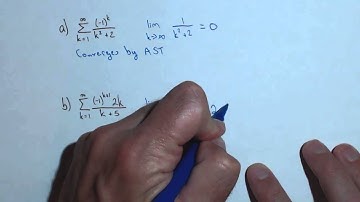 a) ∞ Σ k=1 (-1)^k / k³+2 lim k→∞ 1 / k³+2 = 0
Converges by AST
b) ∞ Σ k=1 (-1)^(k+1) 2k / k+5 2